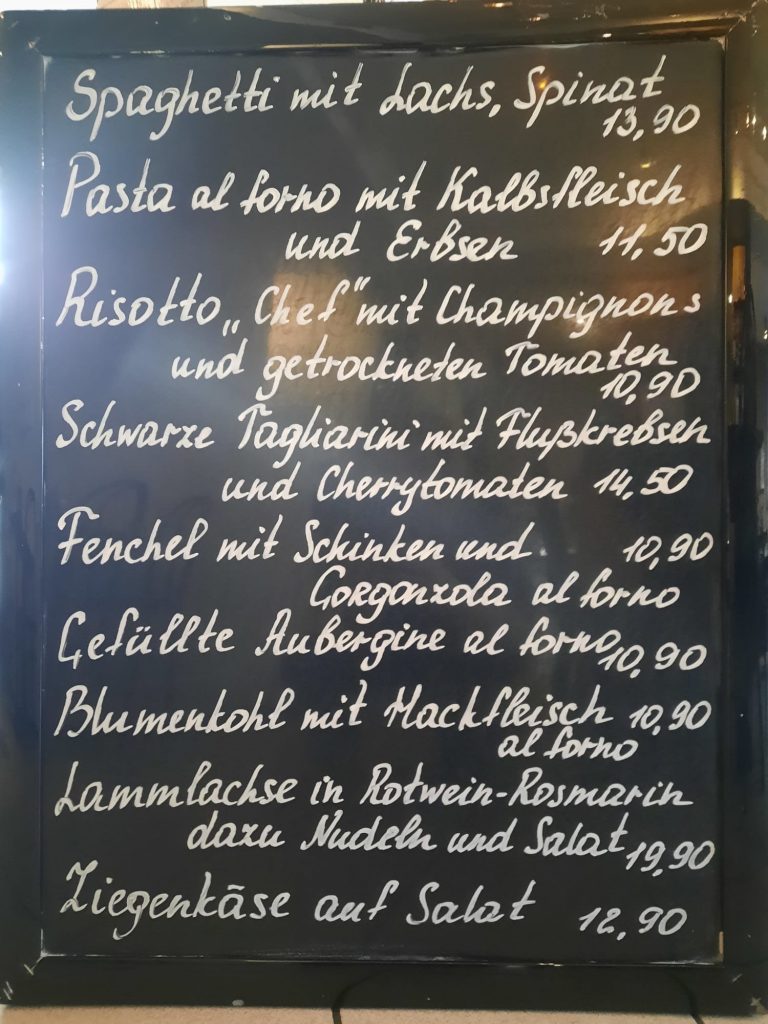 Spaghetti mit Lachs, Spinat
13,90
Pasta al forno mit Kalbsfleisch
und Erbsen 11,50
Risotto „Chef“ mit Champignons
und getrockneten Tomaten
10,90
Schwarze Tagliarini mit Flußkrebsen
und Cherrytomaten 14,50
Fenchel mit Schinken und 10,90
Gorgonzola al forno
Gefüllte Aubergine al forno 10,90
Blumenkohl mit Hackfleisch 10,90
al forno
Lammlachse in Rotwein-Rosmarin
dazu Nudeln und Salat 19,90
Ziegenkäse auf Salat 12,90